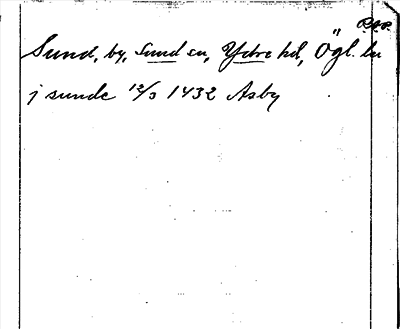 Sund, by, Sund sn, Ydre hd, Ögl. ln
j sunde 12/3 1432 Asby